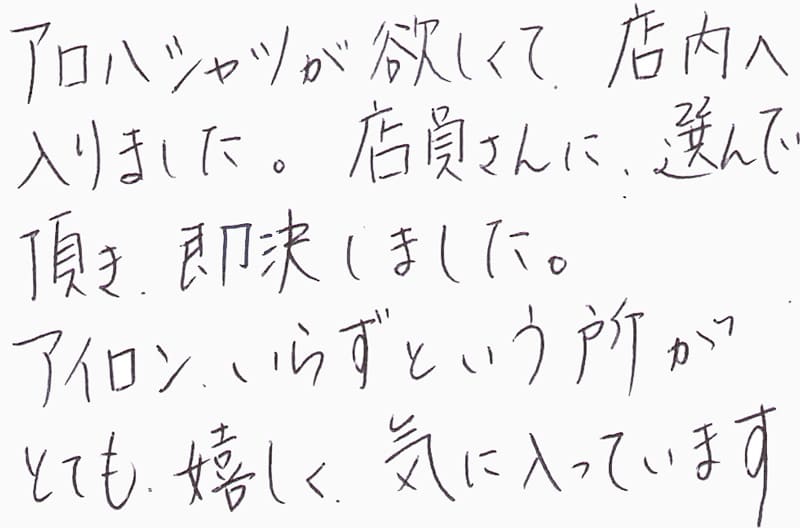 アロハシャツが欲しくて、店内へ
入りました。店員さんに、選んで
頂き、即決しました。
アイロン、いらずという所が
とても、嬉しく、気に入っています